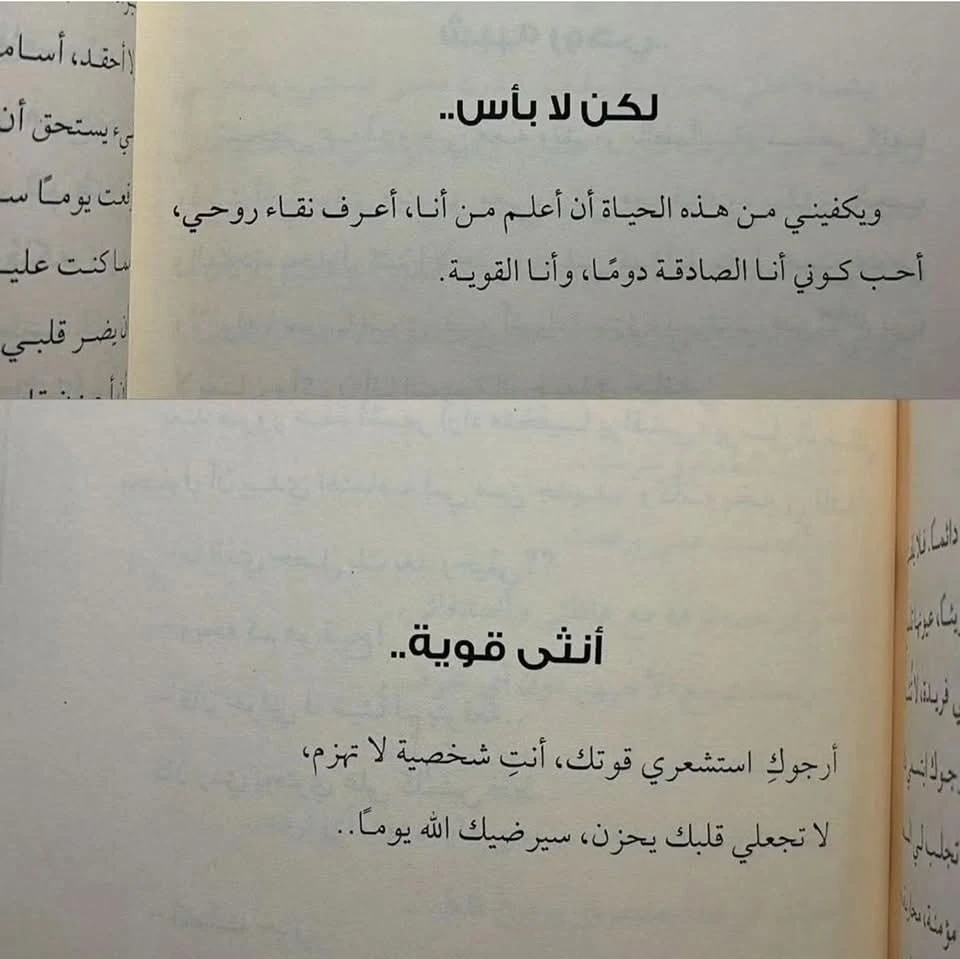 لكن لا بأس..
ويكفيني من هذه الحياة أن أعلم من أنا، أعرف نقاء روحي،
أحب كوني أنا الصادقة دومًا، وأنا القوية.
أحقد، أسام
يستحق أن
يومًا س
كنت عليـ
يضر قلبي
أنثى قوية..
أرجوكِ استشعري قوتك، أنتِ شخصية لا تهزم،
لا تجعلي قلبك يحزن، سيرضيك الله يومًا..
دائمًا. فلا
عيونها
فريدة، لا
تجلب لي
مؤمنة،